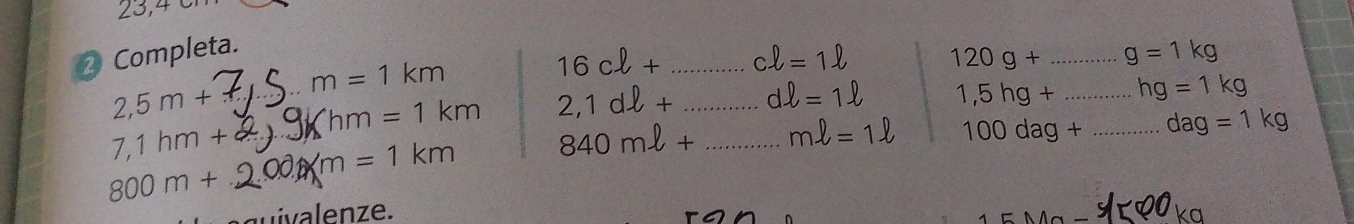 23,4 cm
2 Completa.
2,5 m + 7,5 m = 1 km
7,1 hm + 2,9 hm = 1 km
800 m + 200 m = 1 km
16 cl + ............ cl = 1 l
2,1 dl + ............ dl = 1 l
840 ml + ............ ml = 1 l
120 g + ............ g = 1 kg
1,5 hg + ............ hg = 1 kg
100 dag + ............ dag = 1 kg
equivalenze.
1,5 Mg = 1500 kg